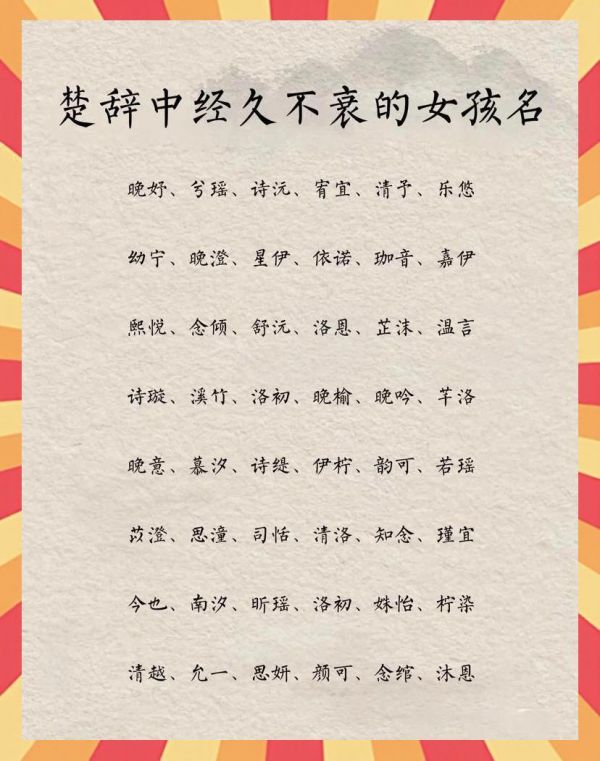 楚辞中经久不衰的女孩名
晚妤、兮瑶、诗沅、宥宜、清予、乐悠
幼宁、晚澄、星伊、依诺、珈音、嘉伊
熙悦、念倾、舒沅、洛恩、芷沫、温言
诗璇、溪竹、洛初、晚榆、晚吟、芊洛
晚意、慕汐、诗缇、伊柠、韵可、若瑶
苡澄、思潼、司恬、清洛、知念、瑾宜
今也、南汐、昕瑶、洛初、姝怡、柠染
清越、允一、思妍、颜可、念绾、沐恩